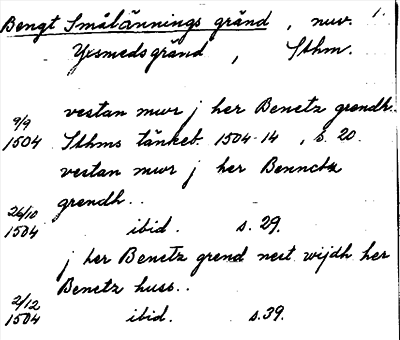 Bengt Smålännings gränd, nuv. 1.
Yxsmedsgränd, Sthm.
vestan mur j her Benetz grendh..
9/9
1504 Sthms tänkeb. 1504-14, s. 20.
vestan mur j her Bennetz
grendh..
26/10
1504 ibid. s. 29.
j her Benetz grend nest wijdh her
Benetz huss..
2/12
1504 ibid. s. 39.